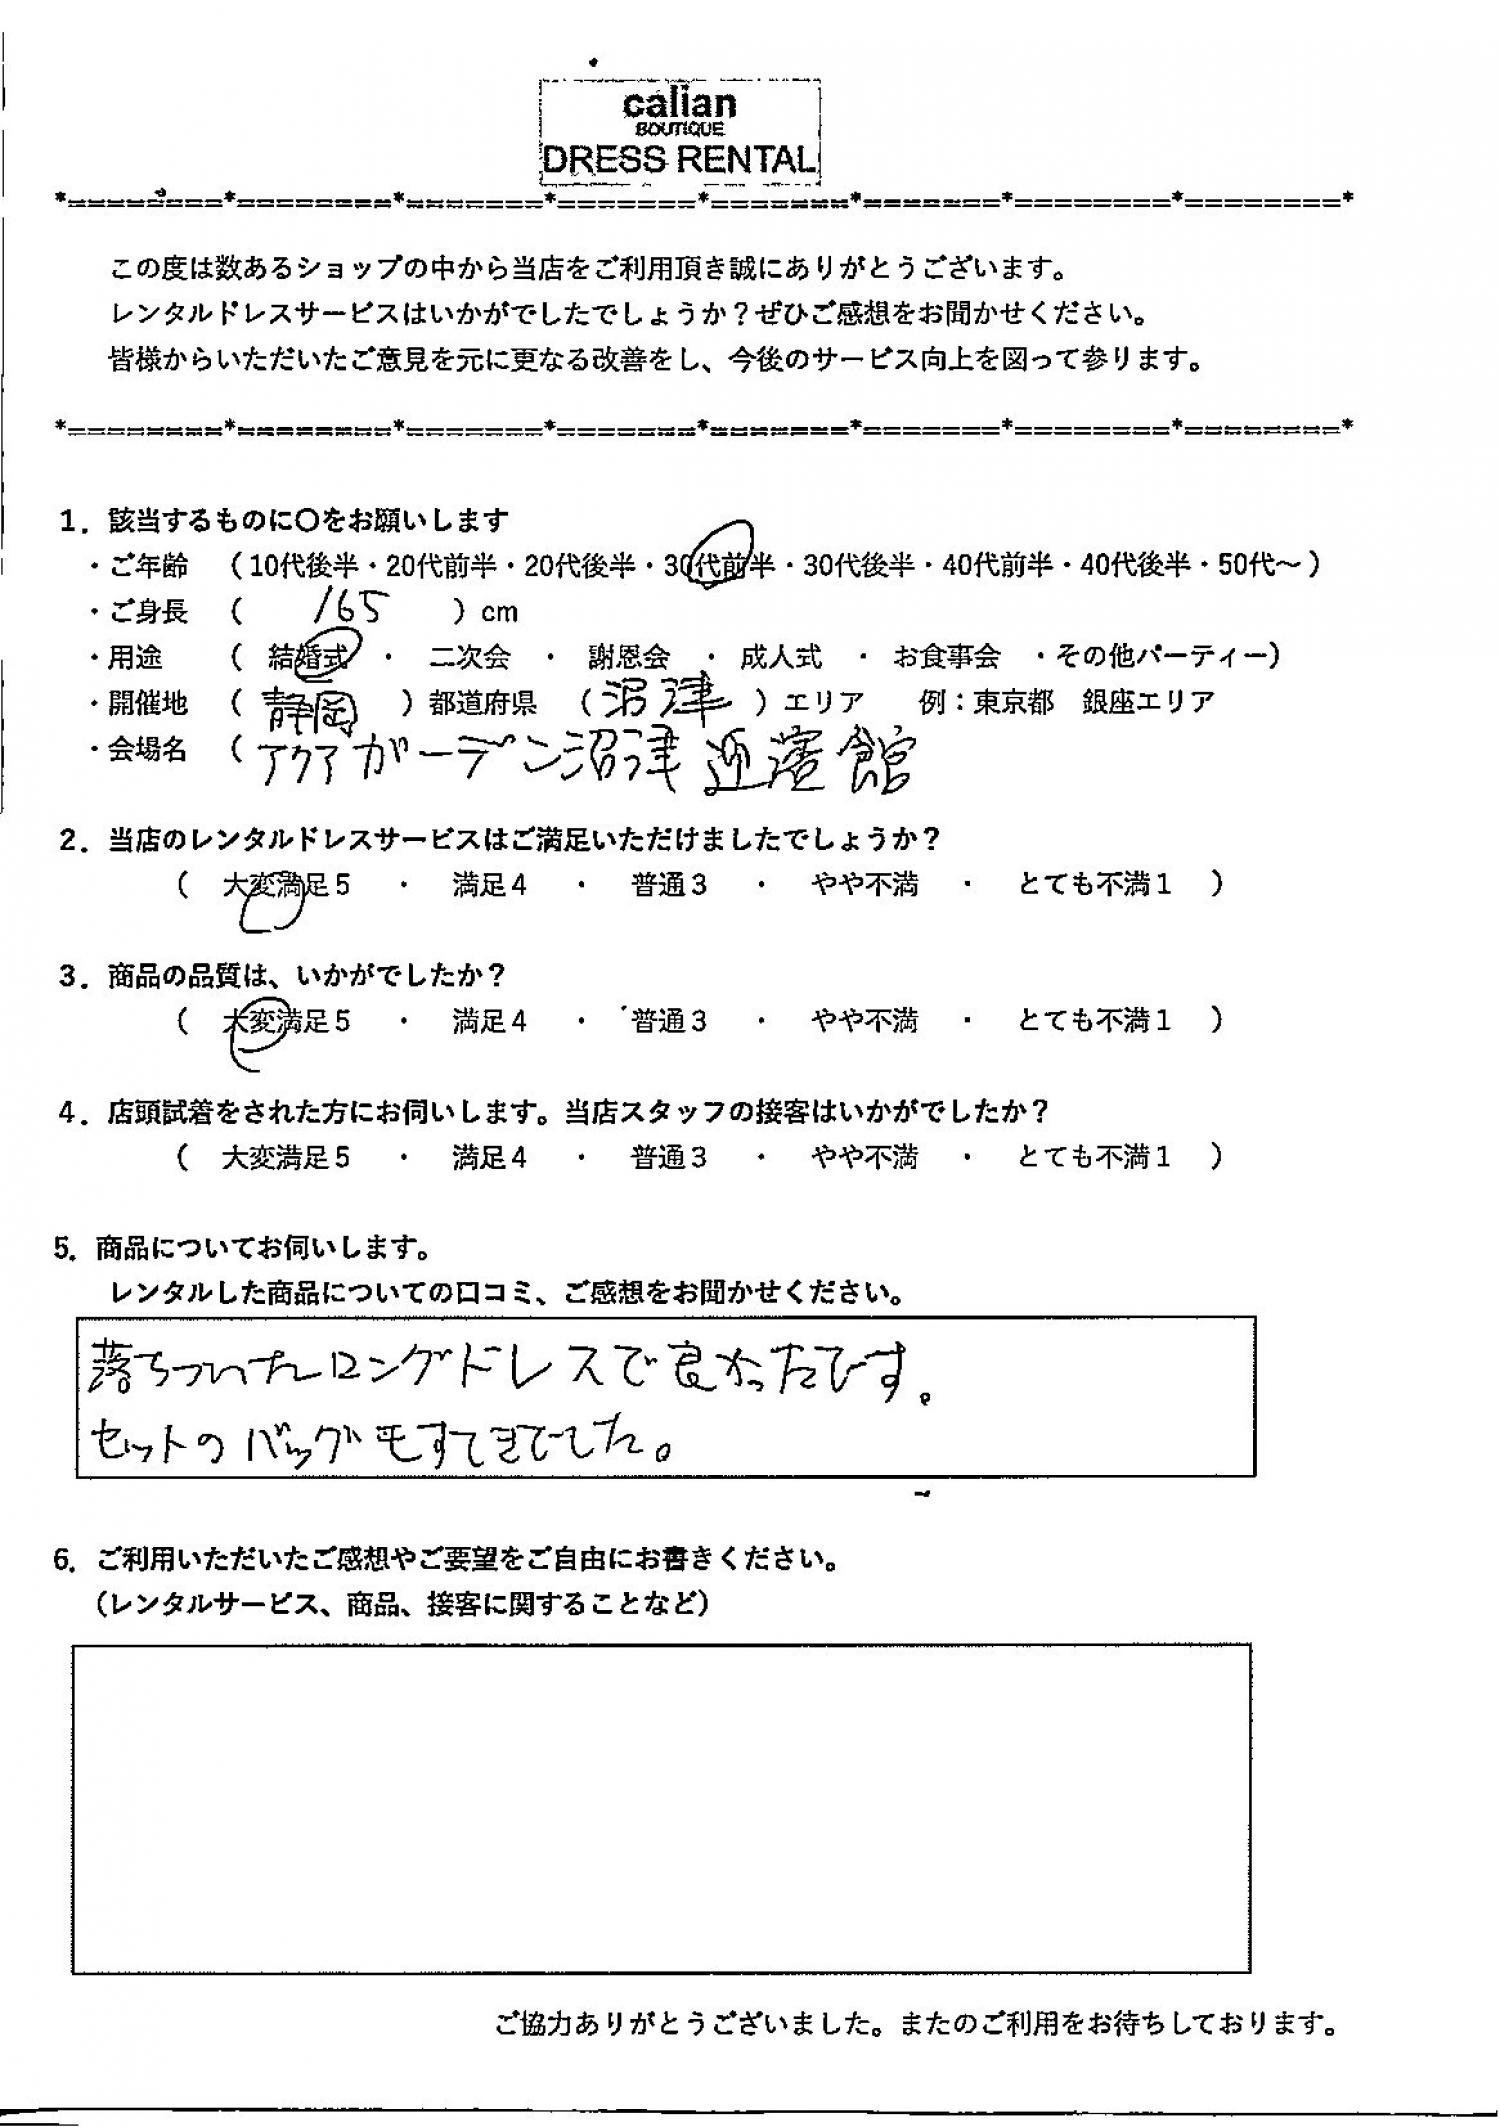 calian
BOUTIQUE
DRESS RENTAL
*========*========*=======*=======*=======*=======*========*========*
この度は数あるショップの中から当店をご利用頂き誠にありがとうございます。
レンタルドレスサービスはいかがでしたでしょうか？ぜひご感想をお聞かせください。
皆様からいただいたご意見を元に更なる改善をし、今後のサービス向上を図って参ります。
*========*========*=======*=======*=======*=======*========*========*
1．該当するものに〇をお願いします
・ご年齢 （10代後半・20代前半・20代後半・30代前半・30代後半・40代前半・40代後半・50代～）
・ご身長 （ 165 ）cm
・用途 （ 結婚式 ・ 二次会 ・ 謝恩会 ・ 成人式 ・ お食事会 ・その他パーティー）
・開催地 （ 静岡 ）都道府県 （沼津）エリア 例：東京都 銀座エリア
・会場名 （アクアガーデン沼津 迎 館
2．当店のレンタルドレスサービスはご満足いただけましたでしょうか？
（ 大変満足5 ・ 満足4 ・ 普通3 ・ やや不満 ・ とても不満1 ）
3．商品の品質は、いかがでしたか？
（ 大変満足5 ・ 満足4 ・ 普通3 ・ やや不満 ・ とても不満1 ）
4．店頭試着をされた方にお伺いします。当店スタッフの接客はいかがでしたか？
（ 大変満足5 ・ 満足4 ・ 普通3 ・ やや不満 ・ とても不満1 ）
5．商品についてお伺いします。
レンタルした商品についての口コミ、ご感想をお聞かせください。
落ちついたロングドレスで良かったです。
セットのバッグもすてきでした。
6．ご利用いただいたご感想やご要望をご自由にお書きください。
（レンタルサービス、商品、接客に関することなど）
ご協力ありがとうございました。またのご利用をお待ちしております。